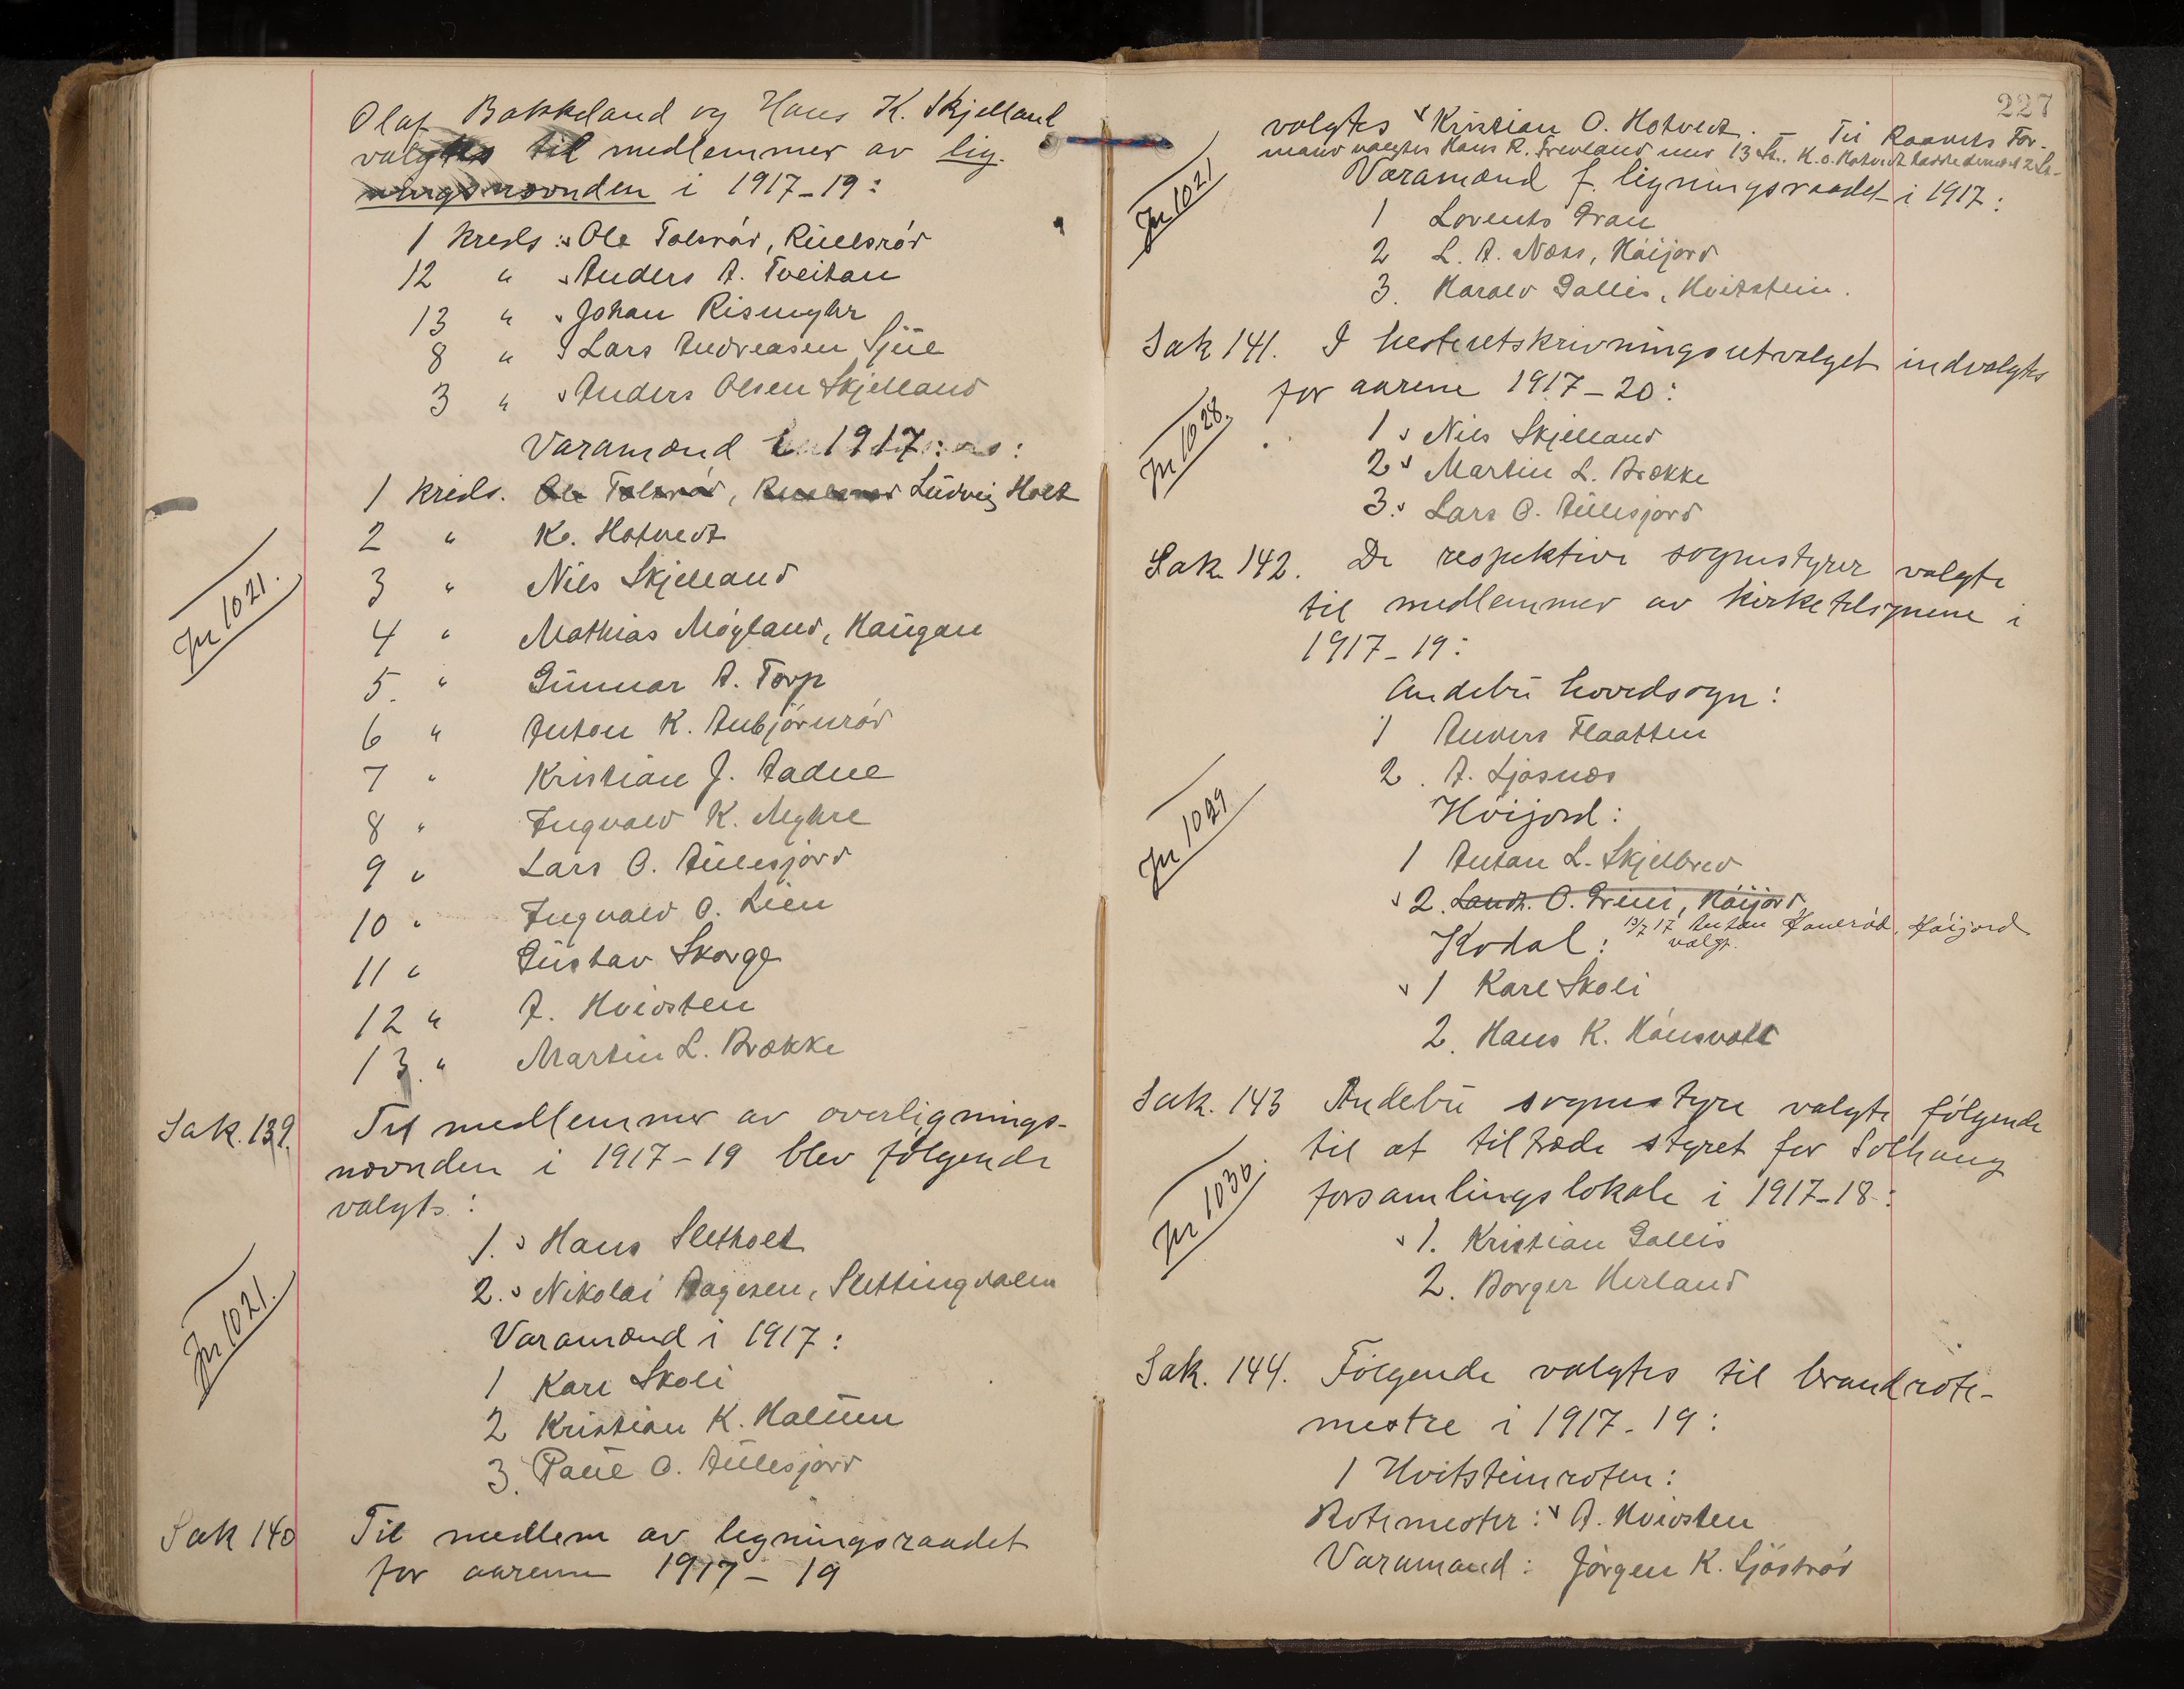 Olaf Bakkeland og Hans K. Skjelland
valgtes til medlemmer av lig-
ningsnævnden i 1917-19:
1 kreds: Ole Tolsrød, Ruelsrød
12 " Anders A. Tveitan
13 " Johan Rismyhr
8 " Lars Andreasen Sjue
3 " Anders Olsen Skjelland
Varamænd i 1917:
1 kreds. Ole Tolsrød, Ludvig Holt
2 " K. Hotvedt
3 " Nils Skjelland
4 " Mathias Møyland, Haugan
5. " Gunnar A. Torp
6 " Anton K. Anbjørnrød
7 " Kristian J. Aadne
8 " Ingvald K. Myhre
9 " Lars O. Aulesjord
10 " Ingvald O. Lien
11 " Gustav Skorge
12 " A. Hvidsten
13. " Martin L. Brække
Jn 1021.
Sak. 139. Til medlemmer av overlignings-
nævnden i 1917-19 blev følgende
valgts:
1. Hans Sletholt
2. Nikolai Aagesen, Slettingdalen
Varamænd i 1917:
1 Karl Skoli
2 Kristian K. Halum
3. Paul O. Aulesjord
Jn 1021.
Sak 140 Til medlem av ligningsraadet
for aarene 1917-19
227
valgtes Kristian O. Hotvedt. - Til Raadets For-
mand valgtes Hans R. Trevland med 13 st. K. O. Hotvedt hadde 2 st.
Varamænd f. ligningsraadet i 1917:
1 Lorents Gran
2 L. A. Næss, Høijord
3. Harald Gallis, Hvitstein.
Jn 1021
Sak 141. I hesteutskrivningsutvalget indvalgtes
for aarene 1917-20:
1 Nils Skjelland
2 Martin L. Brække
3. Lars O. Aulesjord
Jn 1028.
Sak 142. De respektive sognestyrer valgte
til medlemmer av kirketilsynene i
1917-19:
Andebu hovedsogn:
1 Anders Flaatten
2. A. Ljosnæs
Høijord:
1 Anton L. Skjelbred
2. O. Grini, Høijord
Kodal: 13/7 17 Anton Hanerød, Høijord
valgt.
1 Karl Skoli
2. Hans K. Hønsvall
Jn 1029
Sak. 143 Andebu sognestyre valgte følgende
til at tiltræde styret for Solhaug
forsamlingslokale i 1917-18:
1. Kristian Gallis
2. Borger Herland
Jn 1030.
Sak. 144. Følgende valgtes til brandrote-
mestre i 1917-19:
1 Hvitsteinroten:
Rotemester: A. Hvidsten
Varamand: Jørgen K. Sjøstrød